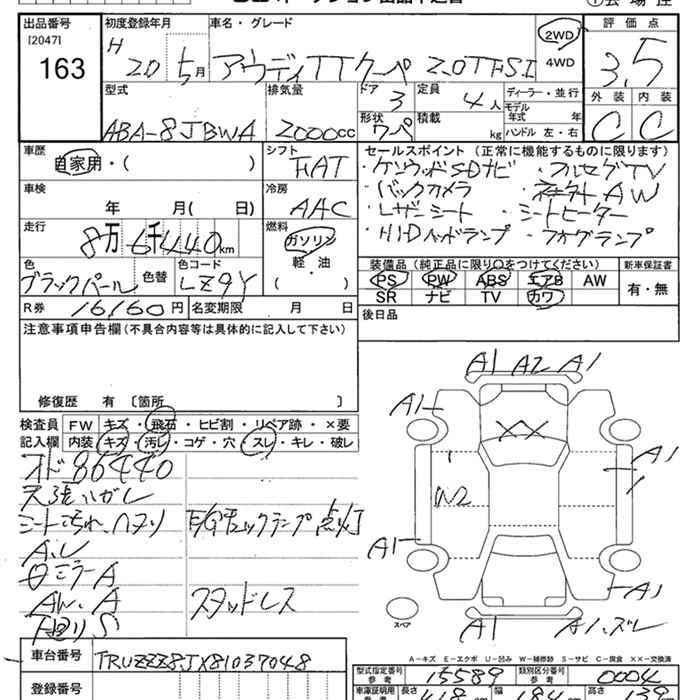 出品番号
[2047]
163
初度登録年月
H 20 5月
車名・グレード
アウディTTクーペ 2.0TFSI
2WD
4WD
評価点
3.5
外装 内装
C C
型式
ABA-8JBWA
排気量
2000cc
ドア
3
形状
クーペ
定員
4人
積載
kg
ディーラー・並行
モデル年式 年
ハンドル 左・右
車歴
自家用・( )
シフト
FAT
車検
年 月( 日)
冷房
AAC
走行
8万6千440km
燃料
ガソリン
軽・油
( )
色
ブラックパール
色替
色コード
LZ9Y
R券 16160円
名変期限 月 日
セールスポイント(正常に機能するものに限ります)
・ケンウッドSDナビ ・フルセグTV
・バックカメラ ・社外AW
・レザーシート ・シートヒーター
・HIDヘッドランプ ・フォグランプ
装備品(純正品に限り○をつけてください)
PS PW ABS エアB AW
SR ナビ TV カワ
新車保証書
有・無
後日品
注意事項申告欄(不具合内容等は具体的に記入して下さい)
修復歴 有 〔箇所
検査員記入欄
FW キズ・飛石・ヒビ割・リペア跡・×要
内装 キズ・汚レ・コゲ・穴・スレ・キレ・破レ
オド86440
天張ハガレ
シート汚れ、ヘタリ E/Gチェックランプ点灯
A,レ
日ミラーA
AW.A スタッドレス
下回りS
A1 A2 A1
A1
XX
A1
W2
A1
A1
A1
A1.ズレ
スペア
A-キズ E-エクボ U-凹み W-補修跡 S-サビ C-腐食 XX-交換済
車台番号
TRUZZZ8JX81037048
登録番号
型式指定番号 参考 15589
類別区分番号 参考 0004
車庫証明用 参考
長さ 418cm
幅 184cm
高さ 139